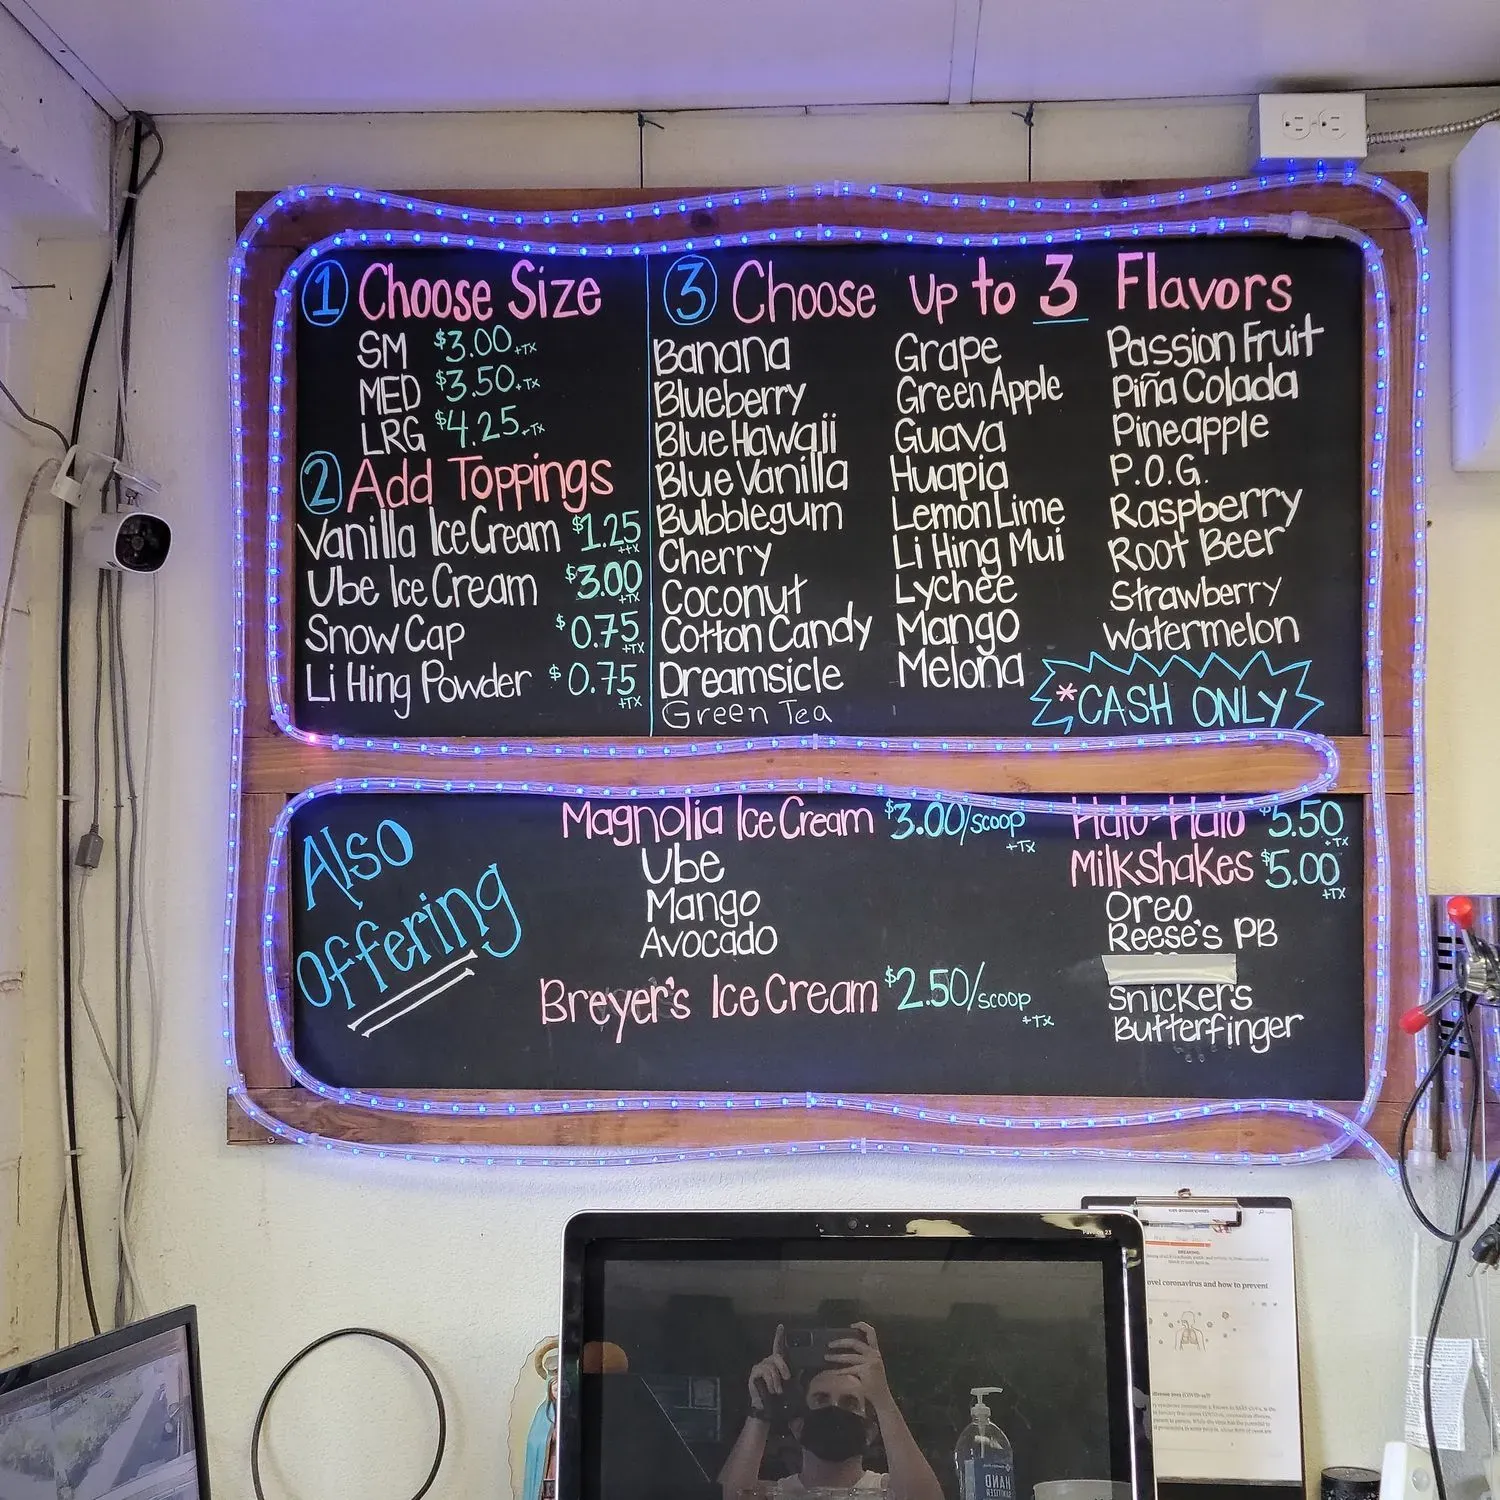 1 Choose Size
SM $3.00 +TX
MED $3.50 +TX
LRG $4.25 +TX
2 Add Toppings
Vanilla Ice Cream $1.25 +TX
Ube Ice Cream $3.00 +TX
Snow Cap $0.75 +TX
Li Hing Powder $0.75 +TX
3 Choose up to 3 Flavors
Banana
Blueberry
Blue Hawaii
Blue Vanilla
Bubblegum
Cherry
Coconut
Cotton Candy
Dreamsicle
Green Tea
Grape
Green Apple
Guava
Huapia
Lemon Lime
Li Hing Mui
Lychee
Mango
Melona
Passion Fruit
Piña Colada
Pineapple
P.O.G.
Raspberry
Root Beer
Strawberry
Watermelon
*CASH ONLY
Also
Offering
Magnolia Ice Cream $3.00/scoop +Tx
Ube
Mango
Avocado
Breyer's Ice Cream $2.50/scoop +Tx
Halo-Halo $5.50 +TX
Milkshakes $5.00 +TX
Oreo
Reese's PB
Snickers
Butterfinger
BREAKING
ovel coronavirus and how to prevent
HAND
SANITIZER